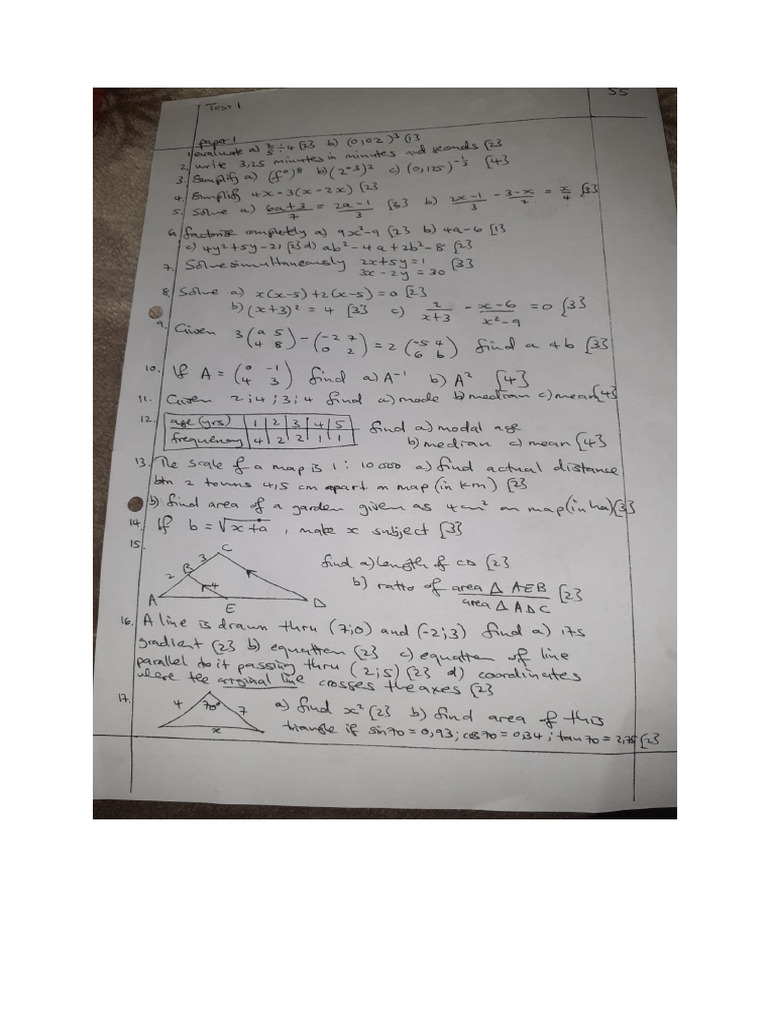 Test 1
55
paper 1
1. evaluate a) 2/5 ÷ 4 [2] b) (0,02)³ [1]
2. write 3,25 minutes in minutes and seconds [2]
3. Simplify a) (f⁰)⁸ b) (2⁻³)² c) (0,125)^(-1/3) [4]
4. Simplify 4x - 3(x - 2x) [2]
5. Solve a) (6a+3)/7 = (2a-1)/3 [3] b) (2x-1)/3 - (3-x)/2 = x/4 [3]
6. factorise completely a) 9x² - 9 [2] b) 4a - 6 [1]
c) 4y² + 5y - 21 [2] d) ab² - 4a + 2b² - 8 [2]
7. Solve simultaneously 2x + 5y = 1 [3]
3x - 2y = 30
8. Solve a) x(x-5) + 2(x-5) = 0 [2]
b) (x+3)² = 4 [3] c) 2/(x+3) - (x-6)/(x²-9) = 0 [3]
9. Given 3(a 5; 4 8) - (-2 7; 0 2) = 2(-5 4; 6 b) find a & b [3]
10. If A = (0 -1; 4 3) find a) A⁻¹ b) A² [4]
11. Given 2; 4; 3; 4 find a) mode b) median c) mean [4]
12. age (yrs) 1 2 3 4 5 find a) modal age
frequency 4 2 2 1 1 b) median c) mean [4]
13. The scale of a map is 1 : 10 000 a) find actual distance
btn 2 towns 4,5 cm apart on map (in km) [2]
b) find area of a garden given as 4cm² on map (in ha) [3]
14. If b = √(x+a), make x subject [3]
15. A 2 B 3 C 4 E D find a) length of CD [2]
b) ratio of area Δ AEB / area Δ ADC [2]
16. A line is drawn thru (7;0) and (-2;3) find a) its
gradient [2] b) equation [2] c) equation of line
parallel to it passing thru (2;5) [2] d) coordinates
where the original line crosses the axes [2]
17. 4 70° 7 x a) find x² [2] b) find area of this
triangle if sin70 = 0,93; cos70 = 0,34; tan70 = 2,75 [2]